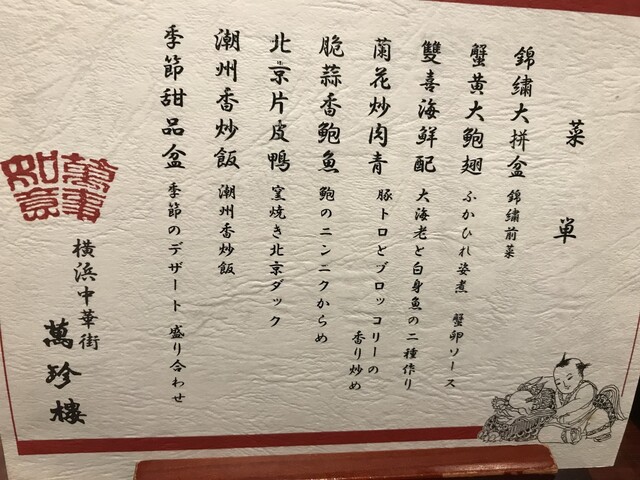 菜単
錦繍大拼盆 錦繍前菜
蟹黄大鮑翅 ふかひれ姿煮 蟹卵ソース
雙喜海鮮配 大海老と白身魚の二種作り
蘭花炒肉青 豚トロとブロッコリーの
香り炒め
脆蒜香鮑魚 鮑のニンニクからめ
北京片皮鴨 窯焼き北京ダック
潮州香炒飯 潮州香炒飯
季節甜品盆 季節のデザート 盛り合わせ
萬事如意
横浜中華街
萬珍樓